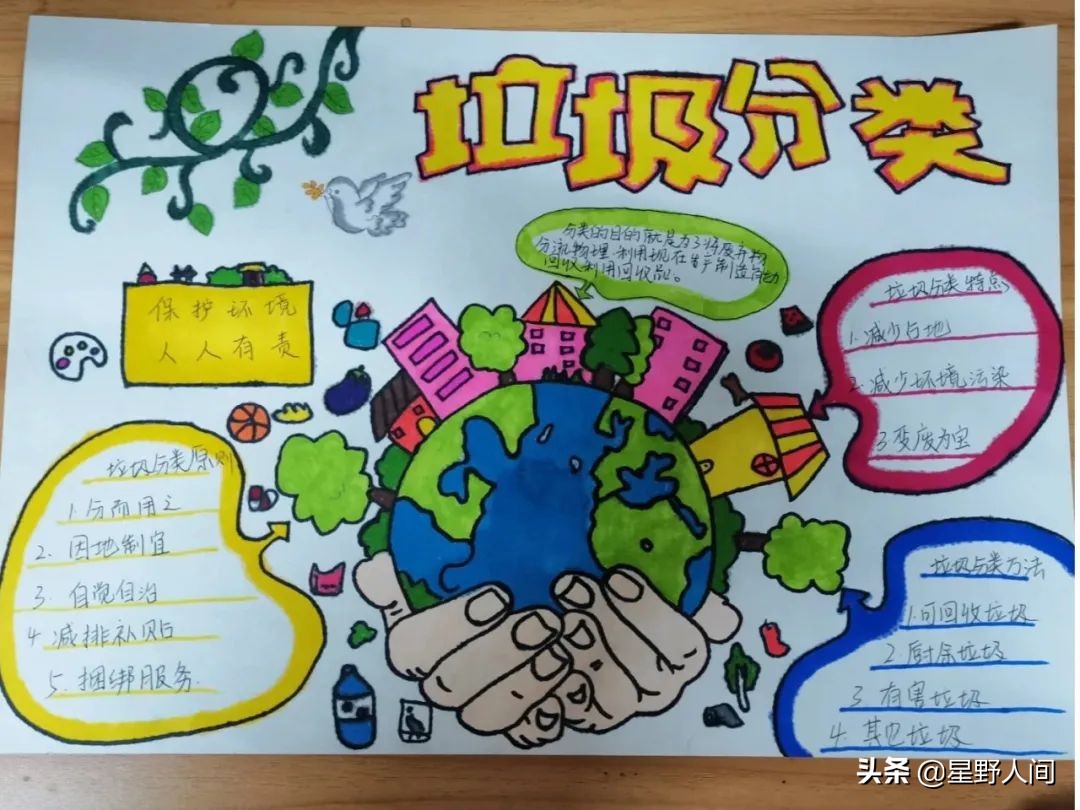 垃圾分类
分类的目的就是为了将废弃物
分流物理利用现在生产制造能动
回收利用回收品。
保护环境
人人有责
垃圾分类特点
1.减少占地
2.减少环境污染
3.变废为宝
垃圾分类原则
1.分而用之
2.因地制宜
3.自觉自治
4.减排补贴
5.捆绑服务.
垃圾分类方法
1.可回收垃圾
2.厨余垃圾
3.有害垃圾
4.其它垃圾
头条 @星野人间